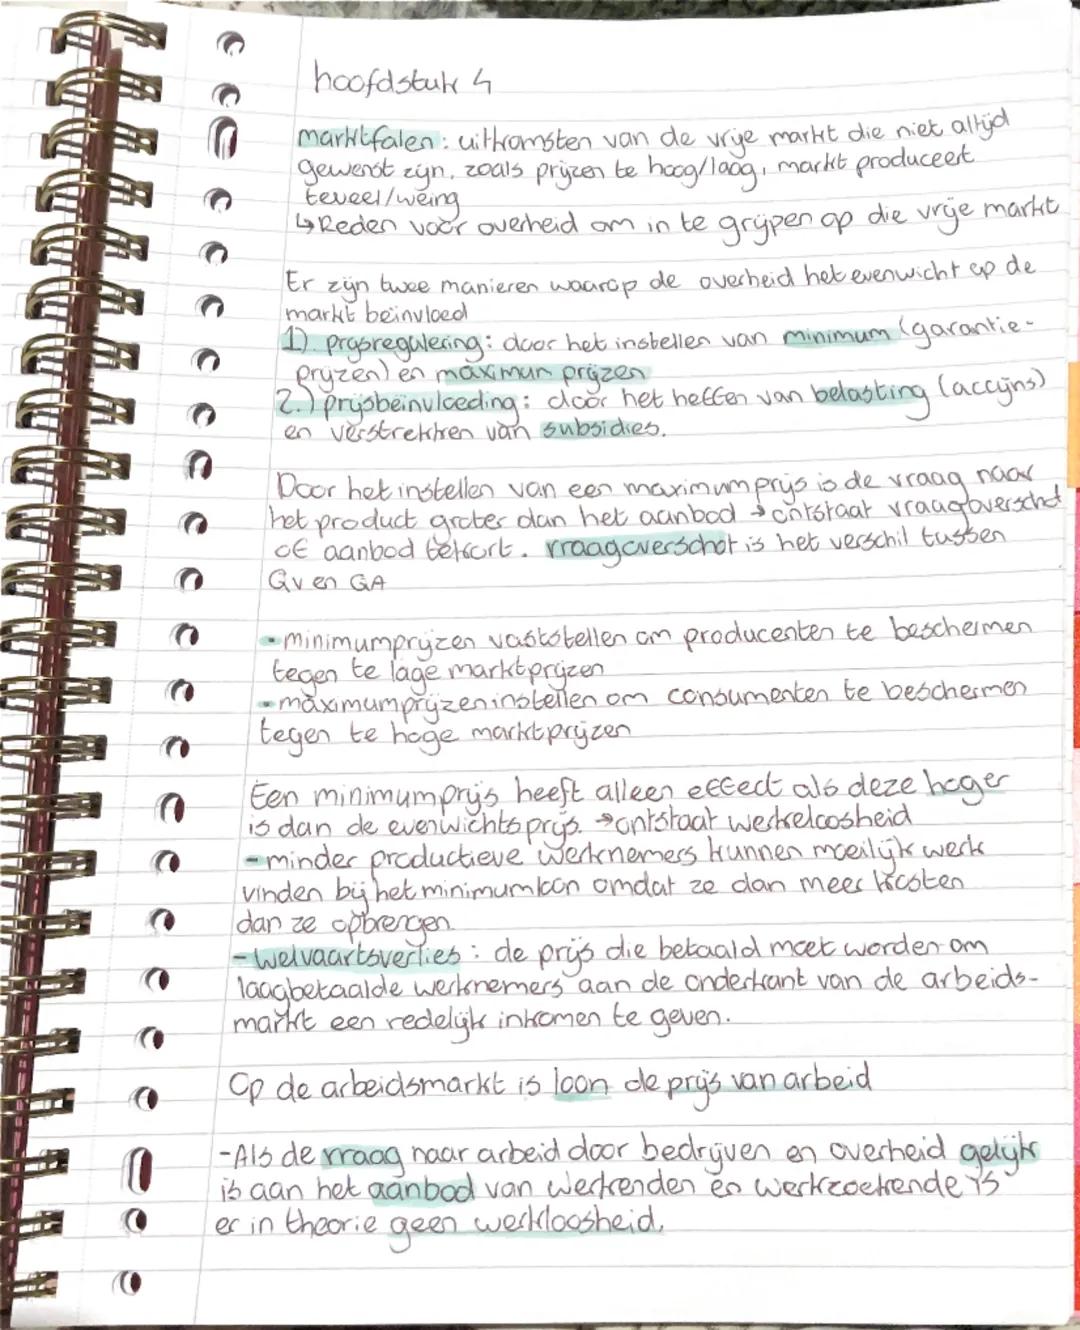 hoofdstuk 4
marktfalen: uitkomsten van de vrije markt die niet altijd
gewenst zijn, zoals prijzen te hoog/laag, markt produceert
teveel/weing
↳Reden voor overheid om in te grijpen op die vrije markt
Er zijn twee manieren waarop de overheid het evenwicht op de
markt beinvloed
1) prijsregulering: door het instellen van minimum (garantie-
prijzen) en maximum prijzen
2.) prijsbeinvloeding: door het heffen van belasting (accijns)
en verstrekken van subsidies.
Door het instellen van een maximumprijs is de vraag naar
het product groter dan het aanbod → ontstaat vraagoverschot
of aanbod tekort. vraagoverschot is het verschil tussen
Qv en QA
- minimumprijzen vaststellen om producenten te beschermen
tegen te lage marktprijzen
- maximumprijzen instellen om consumenten te beschermen
tegen te hoge marktprijzen
Een minimumprijs heeft alleen effect als deze hoger
is dan de evenwichtsprijs. →ontstaat werkeloosheid
- minder productieve werknemers kunnen moeilijk werk
vinden bij het minimumloon omdat ze dan meer kosten
dan ze opbrengen.
- welvaartsverlies : de prijs die betaald moet worden om
laagbetaalde werknemers aan de onderkant van de arbeids-
markt een redelijk inkomen te geven.
Op de arbeidsmarkt is loon de prijs van arbeid
-Als de vraag naar arbeid door bedrijven en overheid gelijk
is aan het aanbod van werkenden en werkzoekende is
er in theorie geen werkloosheid.